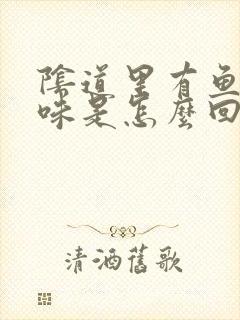 陰道里有鱼
味是怎麼回
清酒舊歌